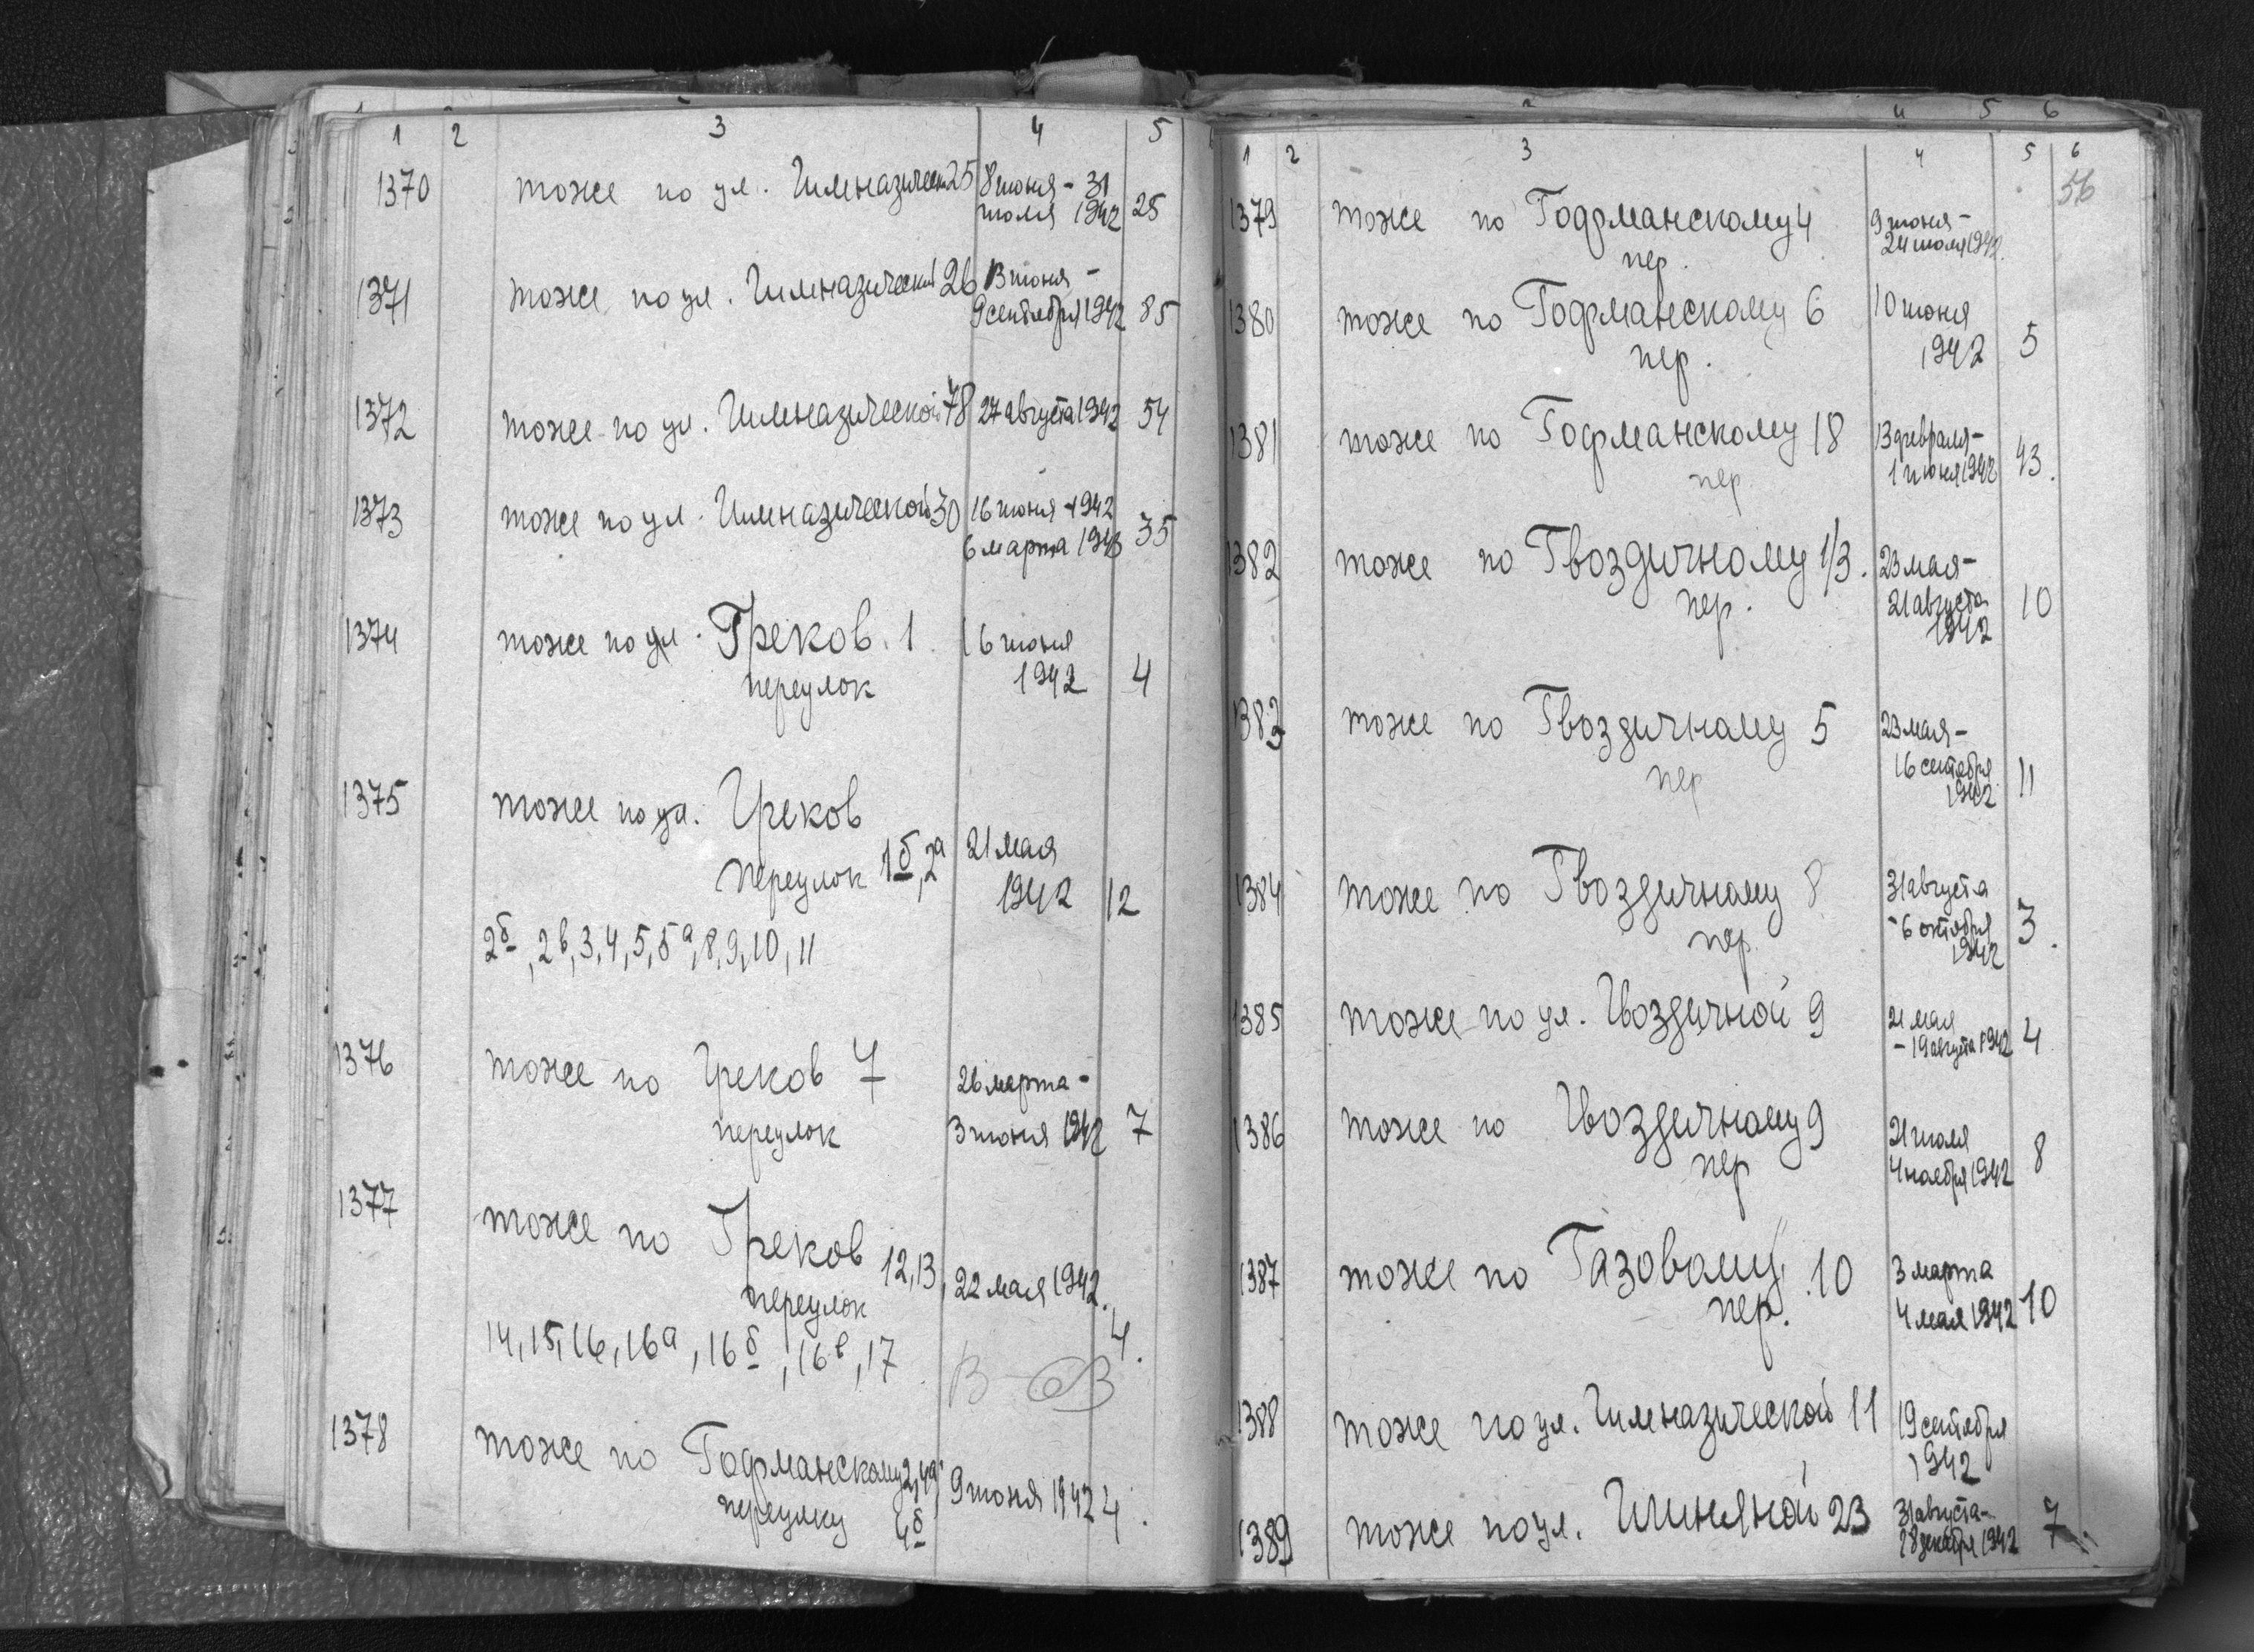 1 2 3 4 5
1370 тоже по ул. Гимназическ 25 8 июня - 31
июля 1942 25
1371 тоже по ул. Гимназической 26 13 июня -
9 сентября 1942 85
1372 тоже по ул. Гимназической 78 27 августа 1942 54
1373 тоже по ул. Гимназической 30 16 июня - 1942
6 марта 1943 35
1374 тоже по ул. Греков. 1 16 июня
переулок 1942 4
1375 тоже по ул. Греков
переулок 1б, 2а 21 мая
1942 12
2б, 2в, 3, 4, 5, 5а, 8, 9, 10, 11
1376 тоже по Греков 7 26 марта -
переулок 3 июня 1942 7
1377 тоже по Греков 12, 13, 22 мая 1942.
переулок
14, 15, 16, 16а, 16б, 16в, 17 4.
1378 тоже по Гофманскому 2, 4а, 9 июня 1942 4.
переулку 4б
4 5 6
1 2 3 4 5 6
56
1379 тоже по Гофманскому 4 9 июня -
пер. 24 июля 1942.
1380 тоже по Гофманскому 6 10 июня
пер. 1942 5
1381 тоже по Гофманскому 18 13 февраля -
пер. 1 июня 1942 43.
1382 тоже по Гвоздичному 1/3. 23 мая -
пер. 21 августа 10
1942
1383 тоже по Гвоздичному 5 23 мая -
пер 16 сентября 11
1942
1384 тоже по Гвоздичному 8 31 августа
пер. - 6 октября 3.
1942
1385 тоже по ул. Гвоздичной 9 21 мая
- 19 августа 1942 4
1386 тоже по Гвоздичному 9 21 июля
пер 4 ноября 1942 8
1387 тоже по Газовому 10 3 марта
пер. 4 мая 1942 10
1388 тоже по ул. Гимназической 11 19 сентября
1942
1389 тоже по ул. Глиняной 23 31 августа -
28 декабря 1942 7